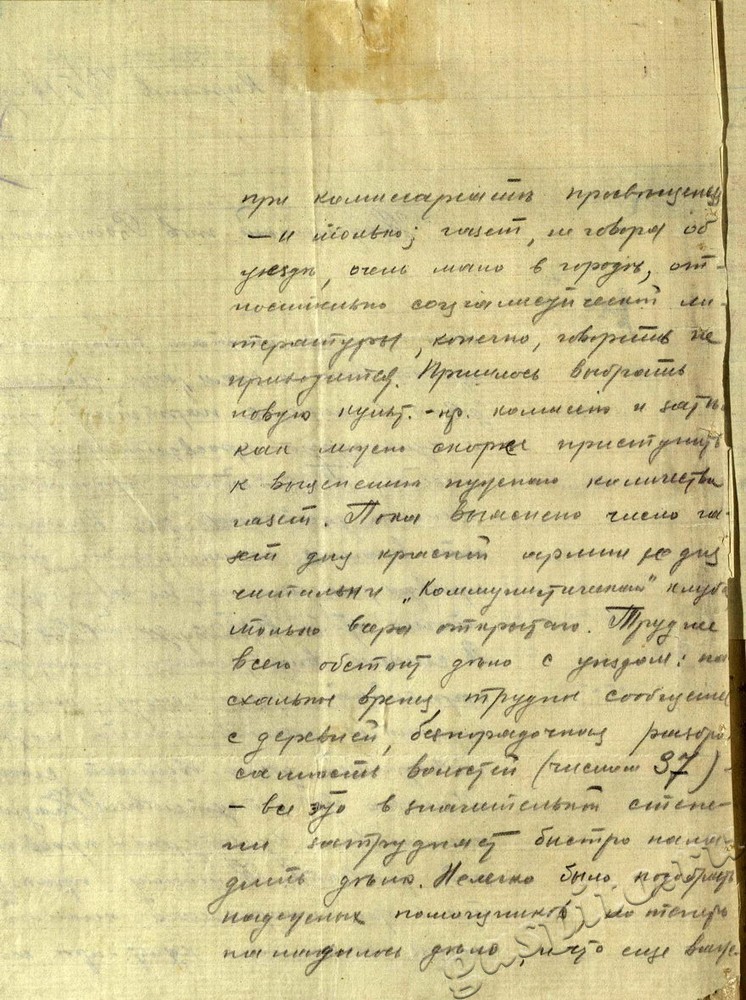 при комиссариатѣ просвѣщенія
— и только; газет, не говоря об
уѣздѣ, очень мало в городѣ, от-
носительно соціалистической ли-
тературы, конечно, говорить не
приходится. Пришлось выбрать
новую культ.-пр. комиссію и затѣм
как можно скорѣе приступить
к выясненію нужнаго количества
газет. Пока выяснено число га-
зет для красной арміи и для
читальни „Коммунистическаго" клуба
только вчера открытаго. Труднее
всего обстоит дѣло с уѣздом:
время трудны сообщения
с деревней, безпорядочная разбро-
санность волостей (числом 37) -
- все это в значительной степе-
ни затрудняет быстро нала-
дить дѣло. Нелегко было подобрать
надежных помощников но теперь
наладилось дѣло, и что еще важне